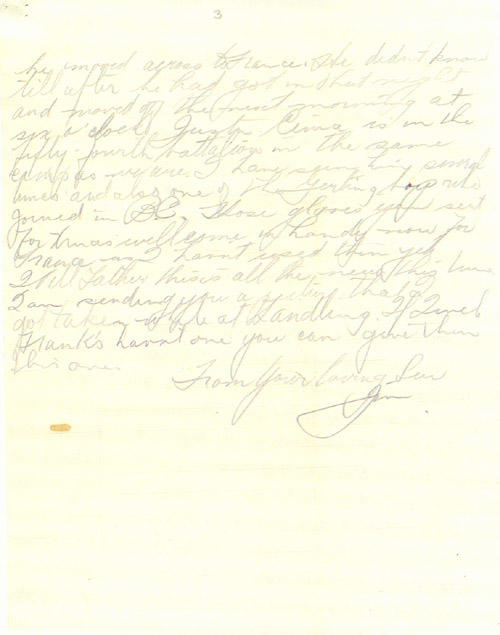 3
he moved across to France. He didn't know
till after he had got in that night
and moved off the next morning at
six a clock. is in the
fifty-fourth battalion in the same
camp as we are. I have seen him several
times and also one of the boys who
joined in BC. Those gloves you sent
for Xmas will come in handy now for
France as I havnt used them yet
Well Father this is all the news this time
I am sending you a that I
got taken while at Sandling. If
Frank's havnt one you can give them
this one.
From Your loving Son
Jim